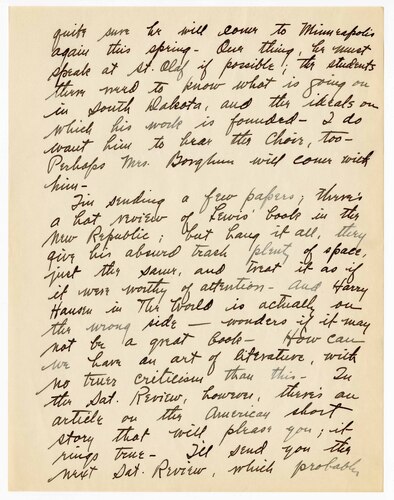 quite sure he will come to Minneapolis
again this spring - One thing, he must
speak at St. Olaf if possible; the students
there need to know what is going on
in South Dakota, and the ideals on
which his work is founded - I do
want him to hear the Choir, too -
Perhaps Mrs. Borglum will come with
him -
I'm sending a few papers; there's
a hot review of Lewis' book in the
New Republic; but hang it all, they
give his absurd trash plenty of space,
just the same, and treat it as if
it were worthy of attention - and Harry
Hansen in The World is actually on
the wrong side — wonders if it may
not be a great book - How can
we have an art of literature, with
no truer criticism than this - In
the Sat. Review, however, there's an
article on the American short
story that will please you; it
rings true - I'll send you the
next Sat. Review, which probably